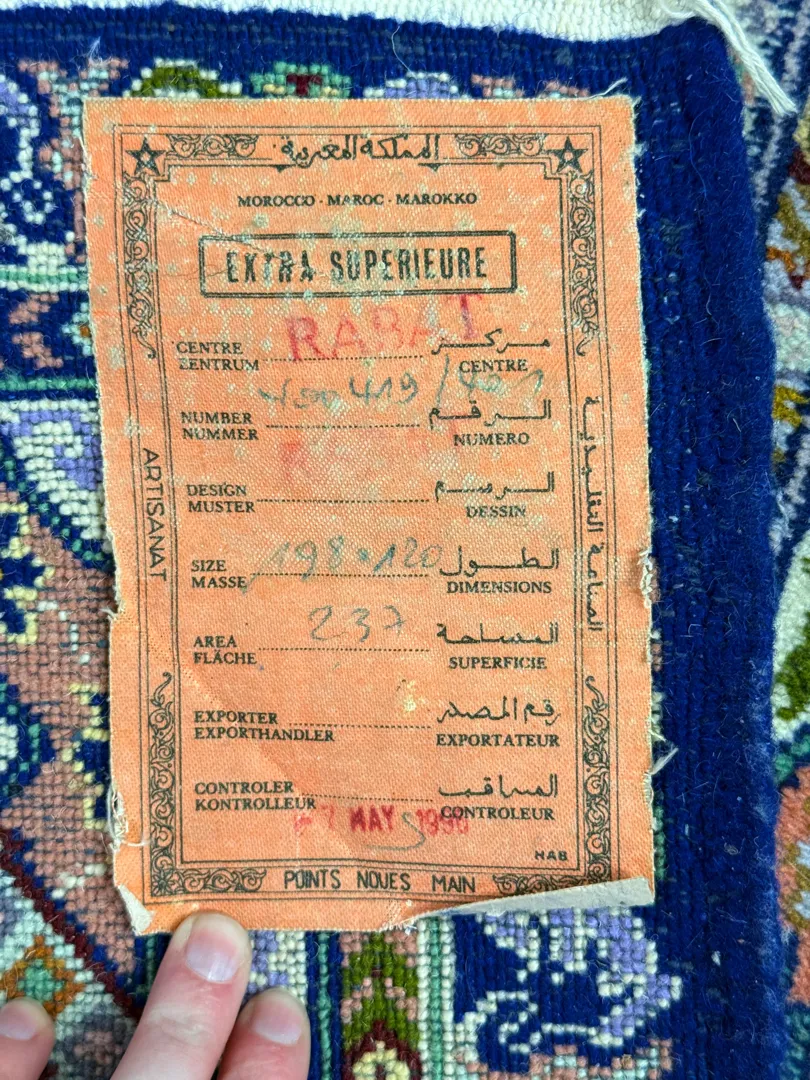 المملكة المغربية
MOROCCO · MAROC · MAROKKO
EXTRA SUPERIEURE
RABAT
CENTRE مركز
ZENTRUM CENTRE
419
NUMBER الرقم
NUMMER NUMERO
DESIGN الرسم
MUSTER DESSIN
198 × 120
SIZE الطول
MASSE DIMENSIONS
237
AREA المساحة
FLÄCHE SUPERFICIE
EXPORTER رقم المصدر
EXPORTHANDLER EXPORTATEUR
CONTROLER المراقب
KONTROLLEUR CONTROLEUR
7 MAY
HAB
POINTS NOUES MAIN
ARTISANAT
الصناعة التقليدية